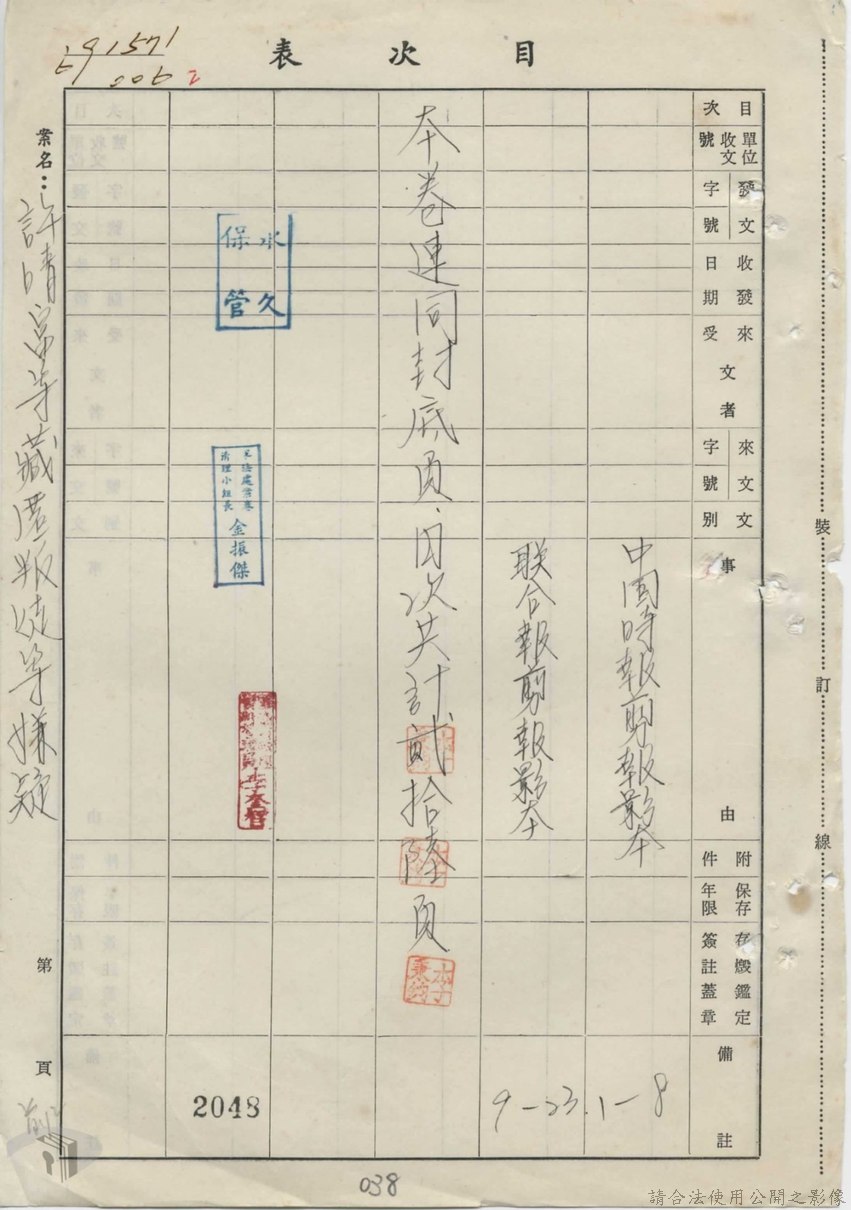 591571
006 2
目次表
目次
單位收文號
發文字號
收發日期
來受文者
來文字號
文別
事由
附件
保存年限
存燬鑑定簽註蓋章
備註
中国時報剪報影本
1-8
联合報剪報影本
9-23
本卷連同封底頁、目次共計貳拾陸頁
李秉鈞
永久保管
軍法處案卷清理小組長
金振傑
2048
案名:許晴富等藏匿叛徒等嫌疑
第 頁
裝訂線
038
請合法使用公開之影像